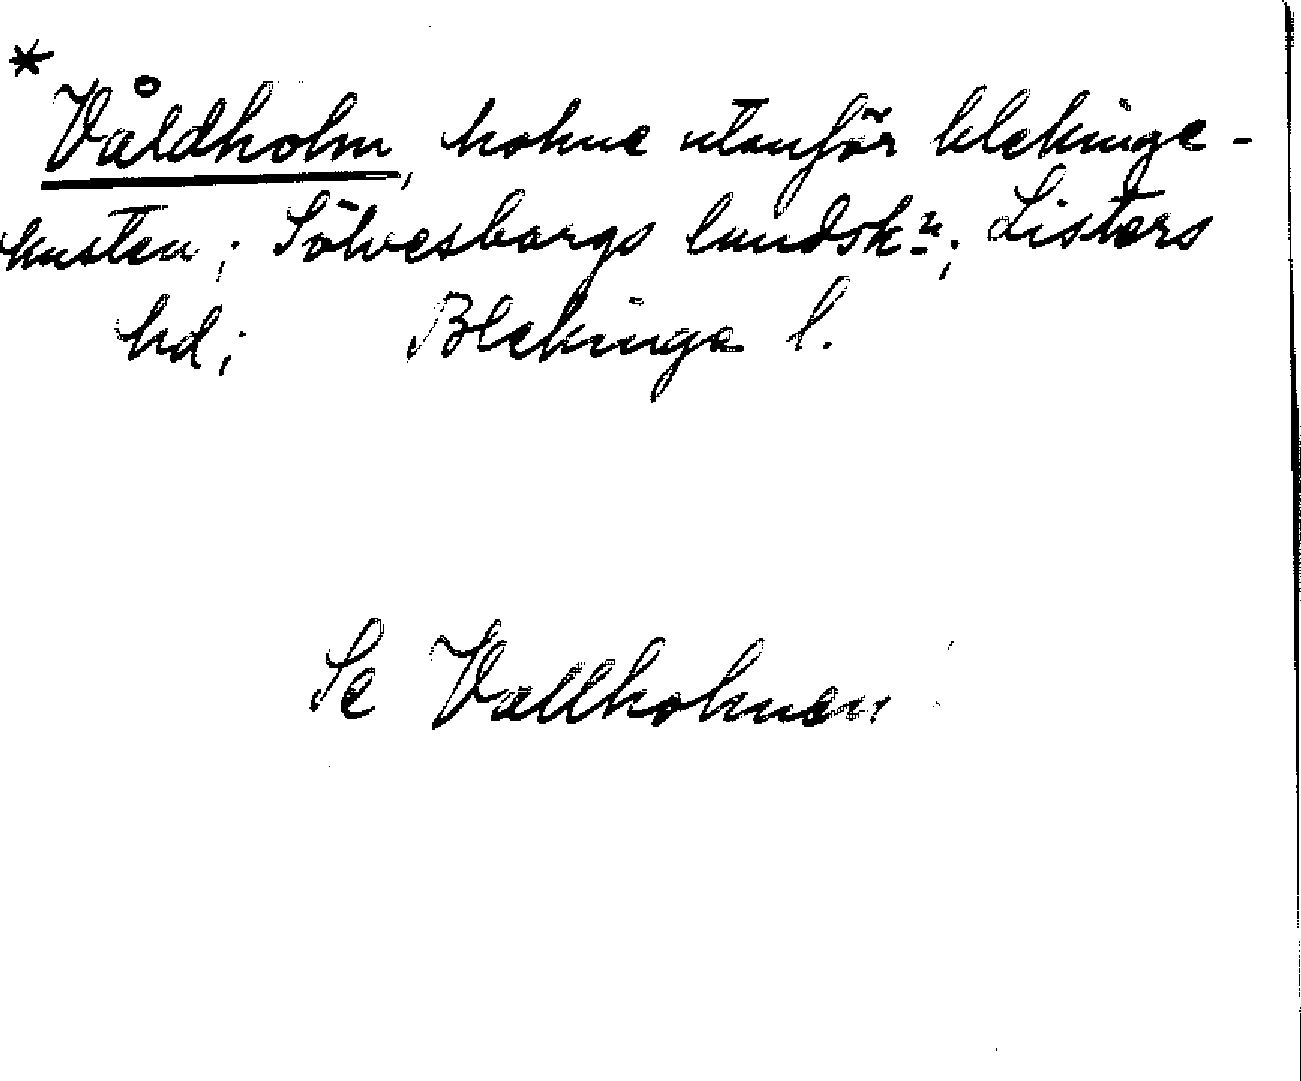 *
Våldholm, holme utanför blekinge-
kusten; Sölvesborgs landsk:n; Listers
hd; Blekinge l.
Se Vallholmen